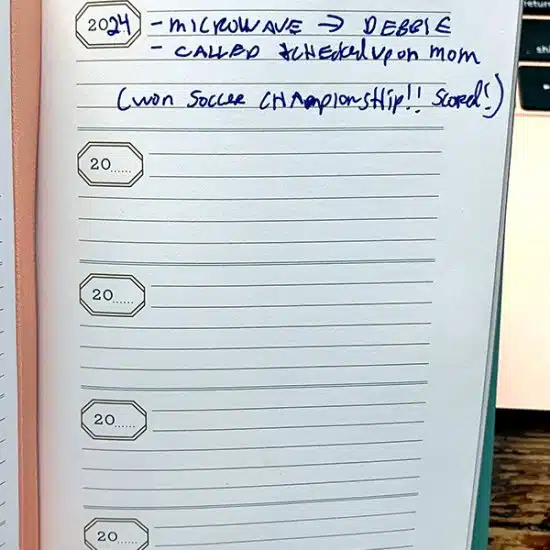 2024 - MICROWAVE → DEBBIE
- CALLED & CHECKED UP ON MOM
(WON SOCCER CHAMPIONSHIP!! SCORED!)
20......
20......
20......
20......
return
shi